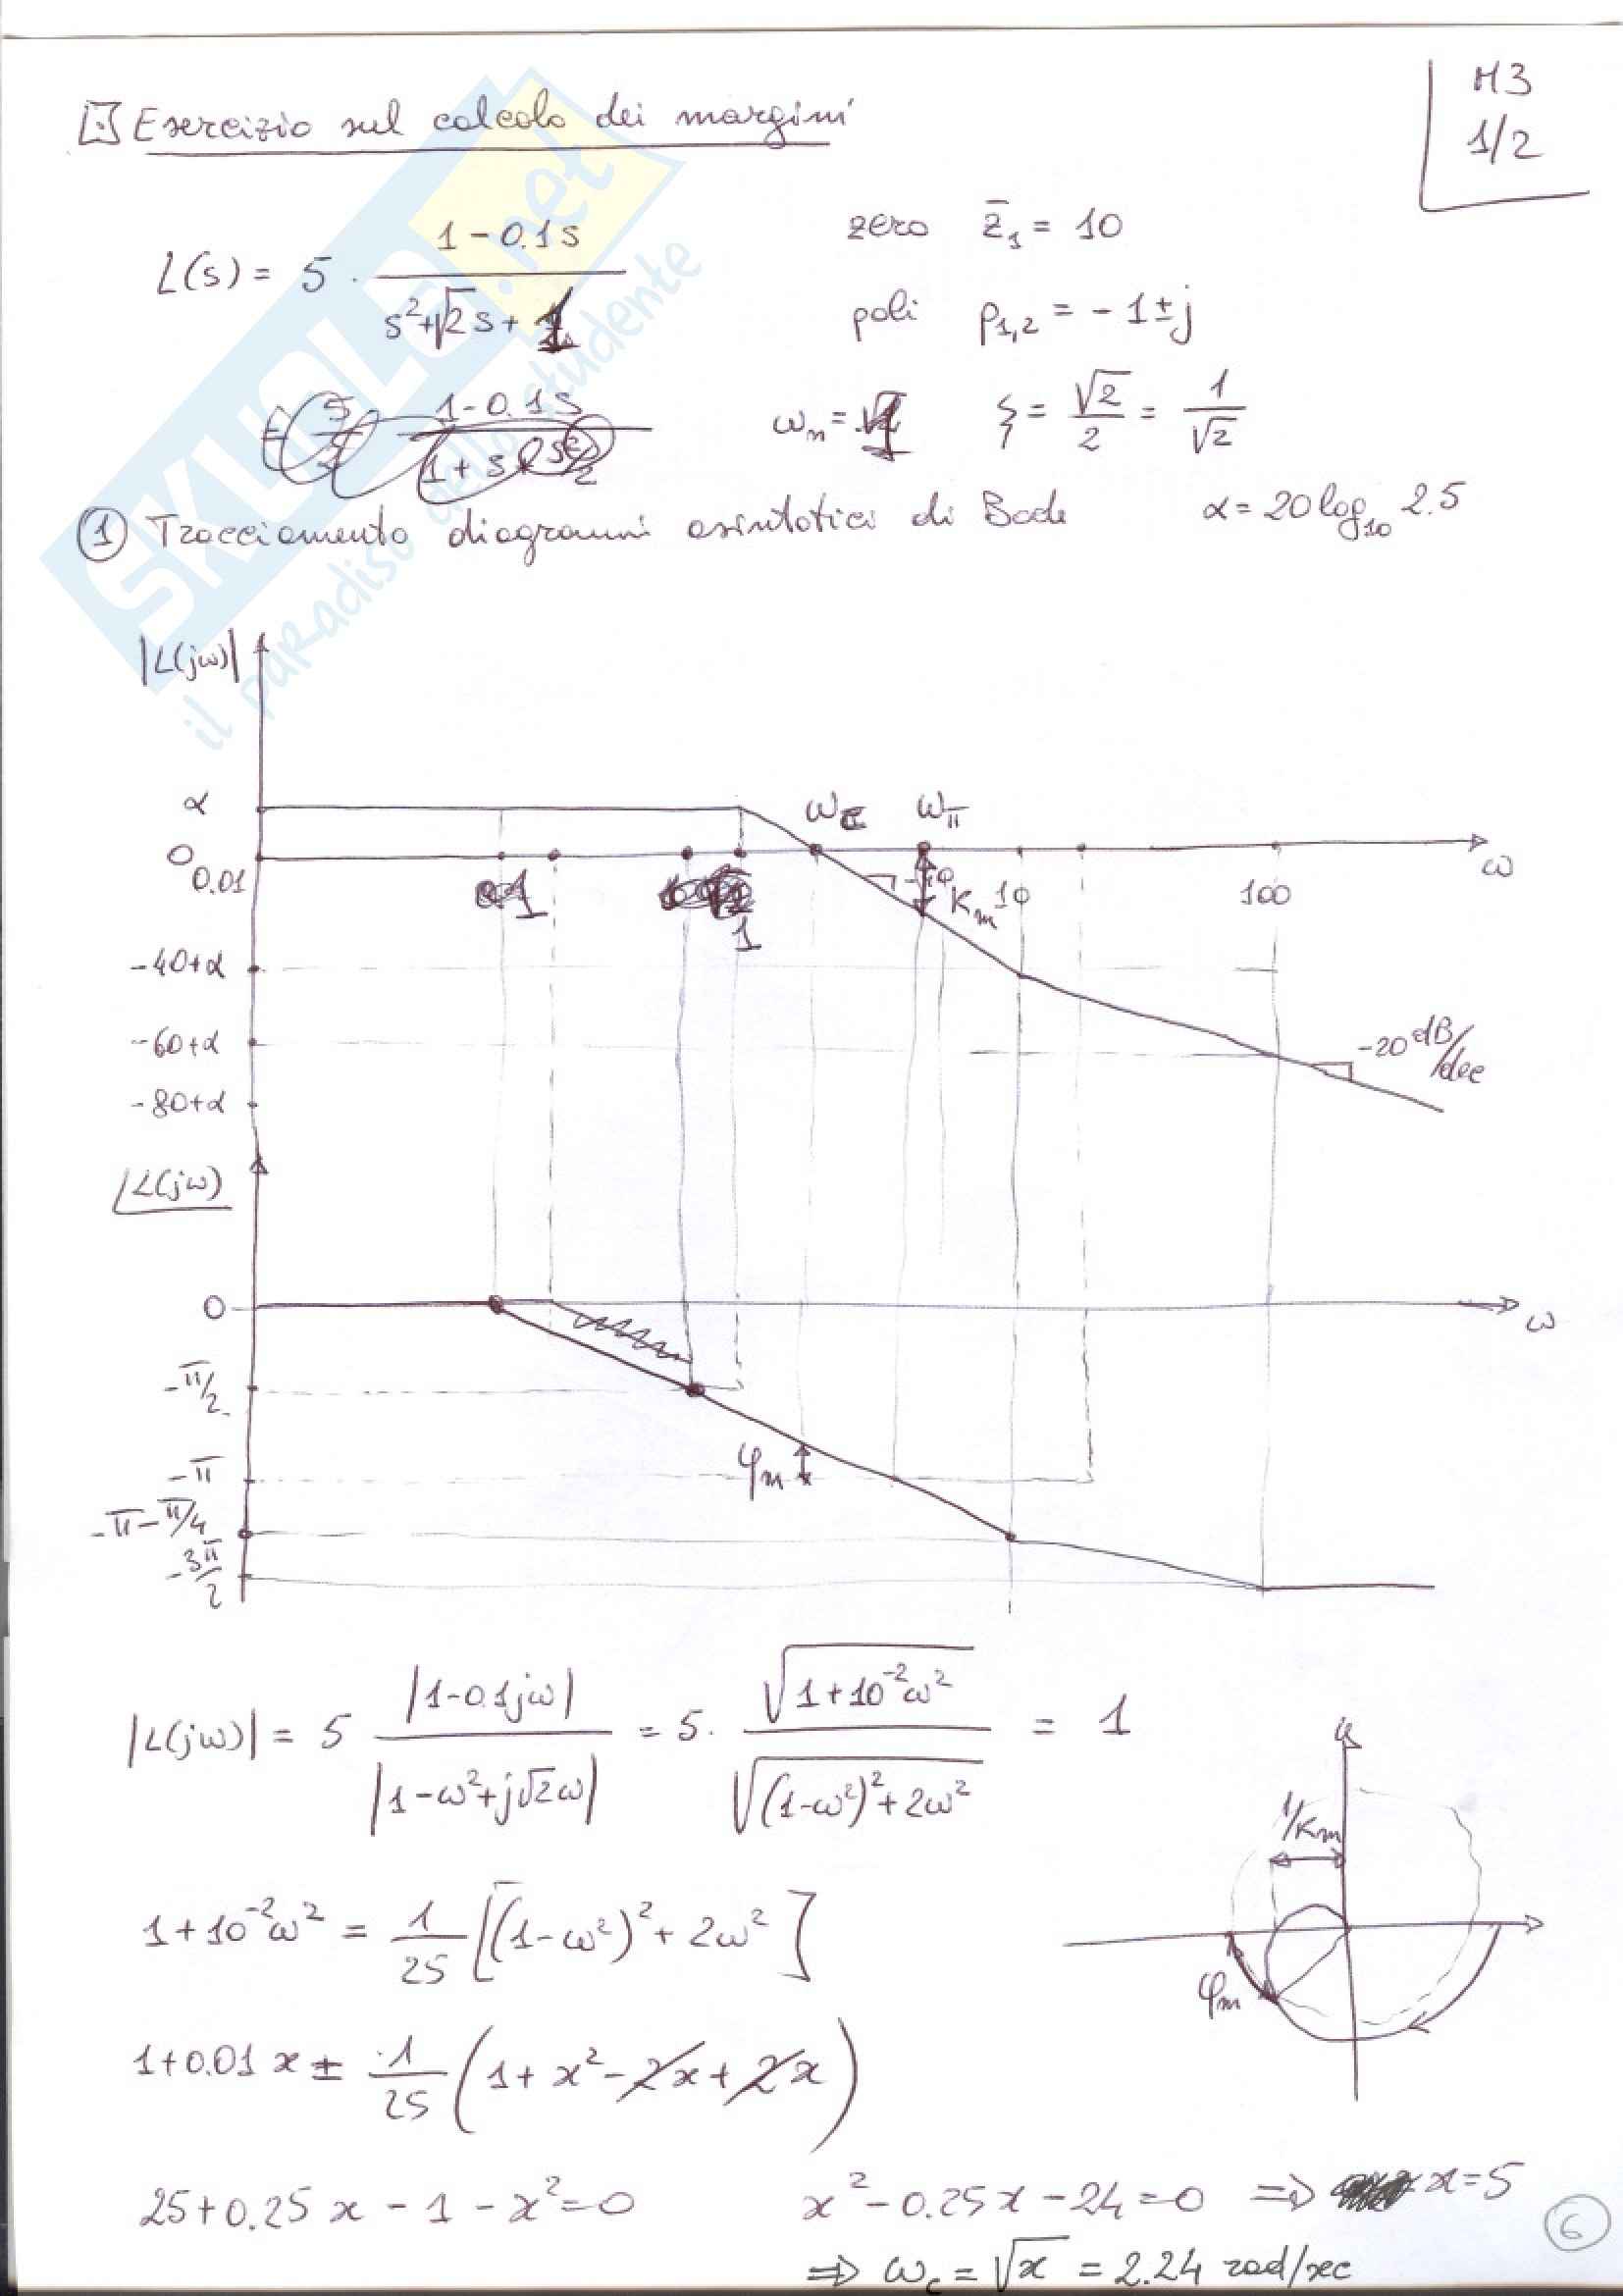 M3
1/2
Esercizio sul calcolo dei margini
L(s) = 5 · (1 - 0.1s) / (s² + √2 s + 1)
zero z̄₁ = 10
poli p₁,₂ = - 1 ± j
ωₙ = 1 ξ = √2/2 = 1/√2
1 - 0.1s
① Tracciamento diagrammi asintotici di Bode α = 20 log₁₀ 2.5
|L(jω)|
α
0
0.01
1
1
ω_c
ω_π
Kₘ
10
100
ω
-40+α
-60+α
-80+α
-20 dB/dec
∠L(jω)
0
ω
-π/2
-π
φₘ
-π-π/4
-3π/2
|L(jω)| = 5 |1-0.1jω| / |1-ω²+j√2ω| = 5 · √(1+10⁻²ω²) / √((1-ω²)²+2ω²) = 1
1/Kₘ
φₘ
1+10⁻²ω² = 1/25 [(1-ω²)²+2ω²]
1+0.01 x = 1/25 (1+x²-2x+2x)
25+0.25 x - 1 - x² = 0 x² - 0.25x - 24 = 0 ⇒ x=5
⇒ ω_c = √x = 2.24 rad/sec
6
SKUOLA.net
il paradiso dello studente